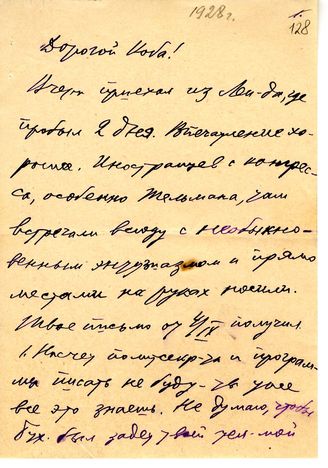 1928г.
128
Дорогой Коба!
Вчера приехал из Лен-да, где
пробыл 2 дня. Впечатление хо-
рошее. Иностранцев с конгрес-
са, особенно Тельмана, там
встречали всюду с необыкно-
венным энтузиазмом и прямо
местами на руках носили.
Твое письмо от 4/IX получил
1. Насчет политсекр-та и програм-
мы писать не буду - уже
все это знаешь. Не думаю, чтобы
Бух. был задет твоей тел-мой